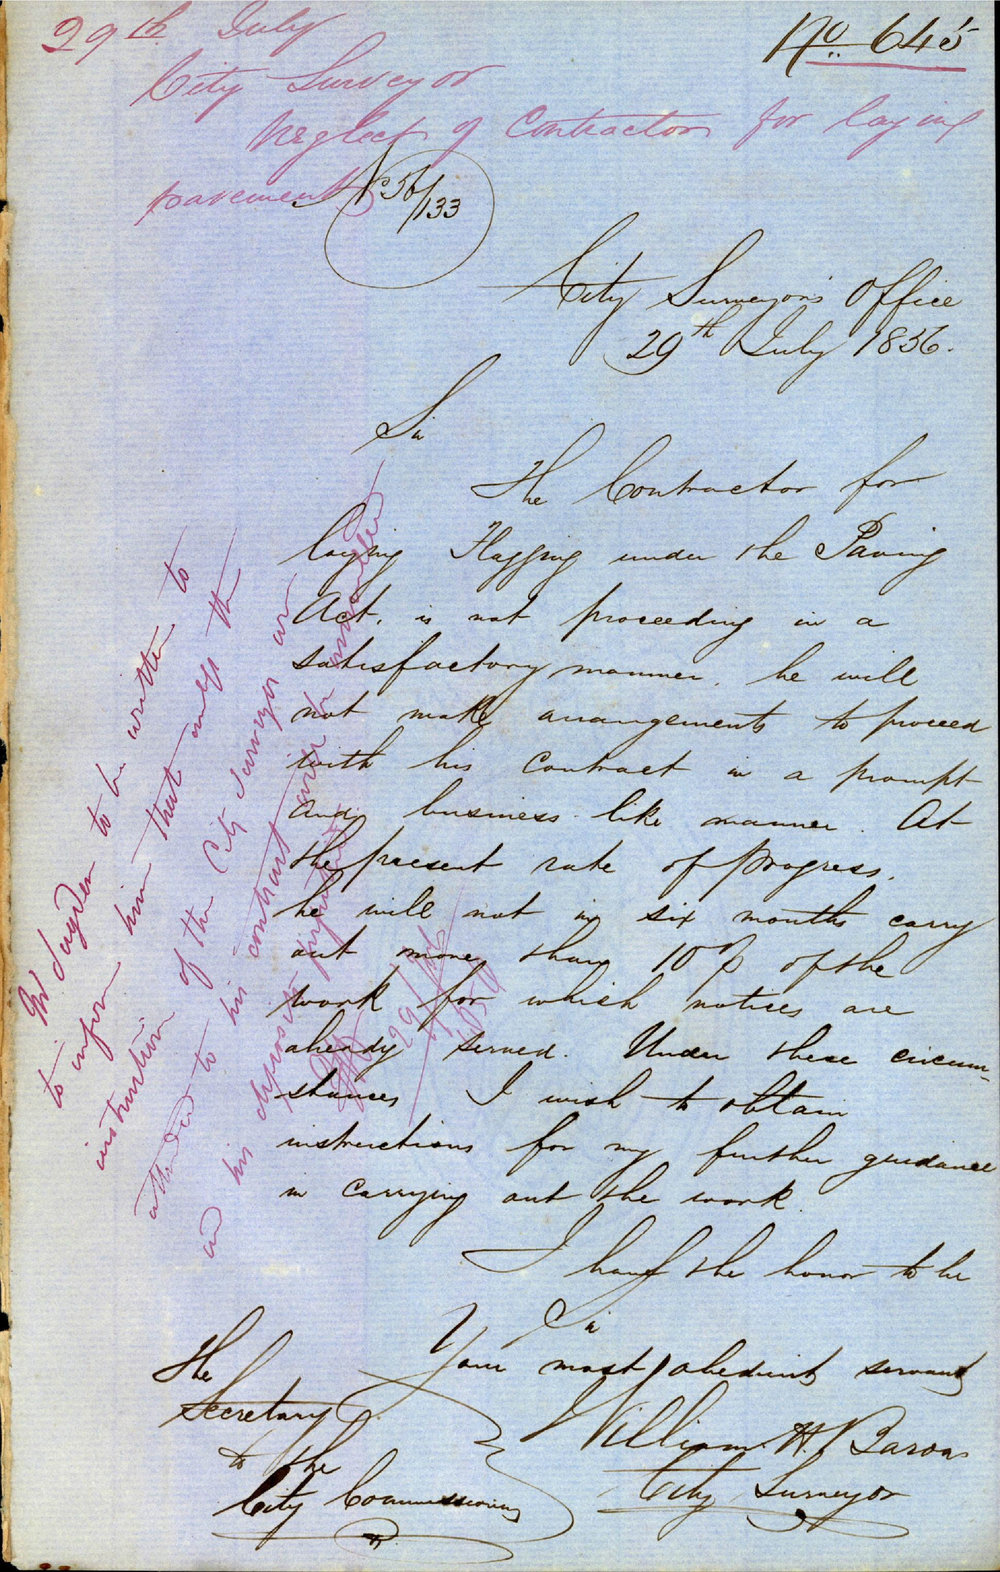 29th July
No 645
City Surveyor
Neglect of Contractor for laying
pavement
56/133
City Surveyor's Office
29th July 1856.
Sir
The Contractor for
laying Flagging under the Paving
Act, is not proceeding in a
satisfactory manner. he will
not make arrangements to proceed
with his contract in a prompt
and business like manner. At
the present rate of progress,
he will not in six months carry
out more than 10 of the
work for which notices are
already served. Under these circum-
stances I wish to obtain
instructions for my further guidance
in carrying out the work.
I have the honor to be
Sir
Your most obedient servant
William H. Barons
City Surveyor
The
Secretary
to the
City Commissioners
Mr. Sugden to be written to
to inform him that unless the
instructions of the City Surveyor are
attended to his contract will be cancelled
and his deposit forfeited
29/7/56